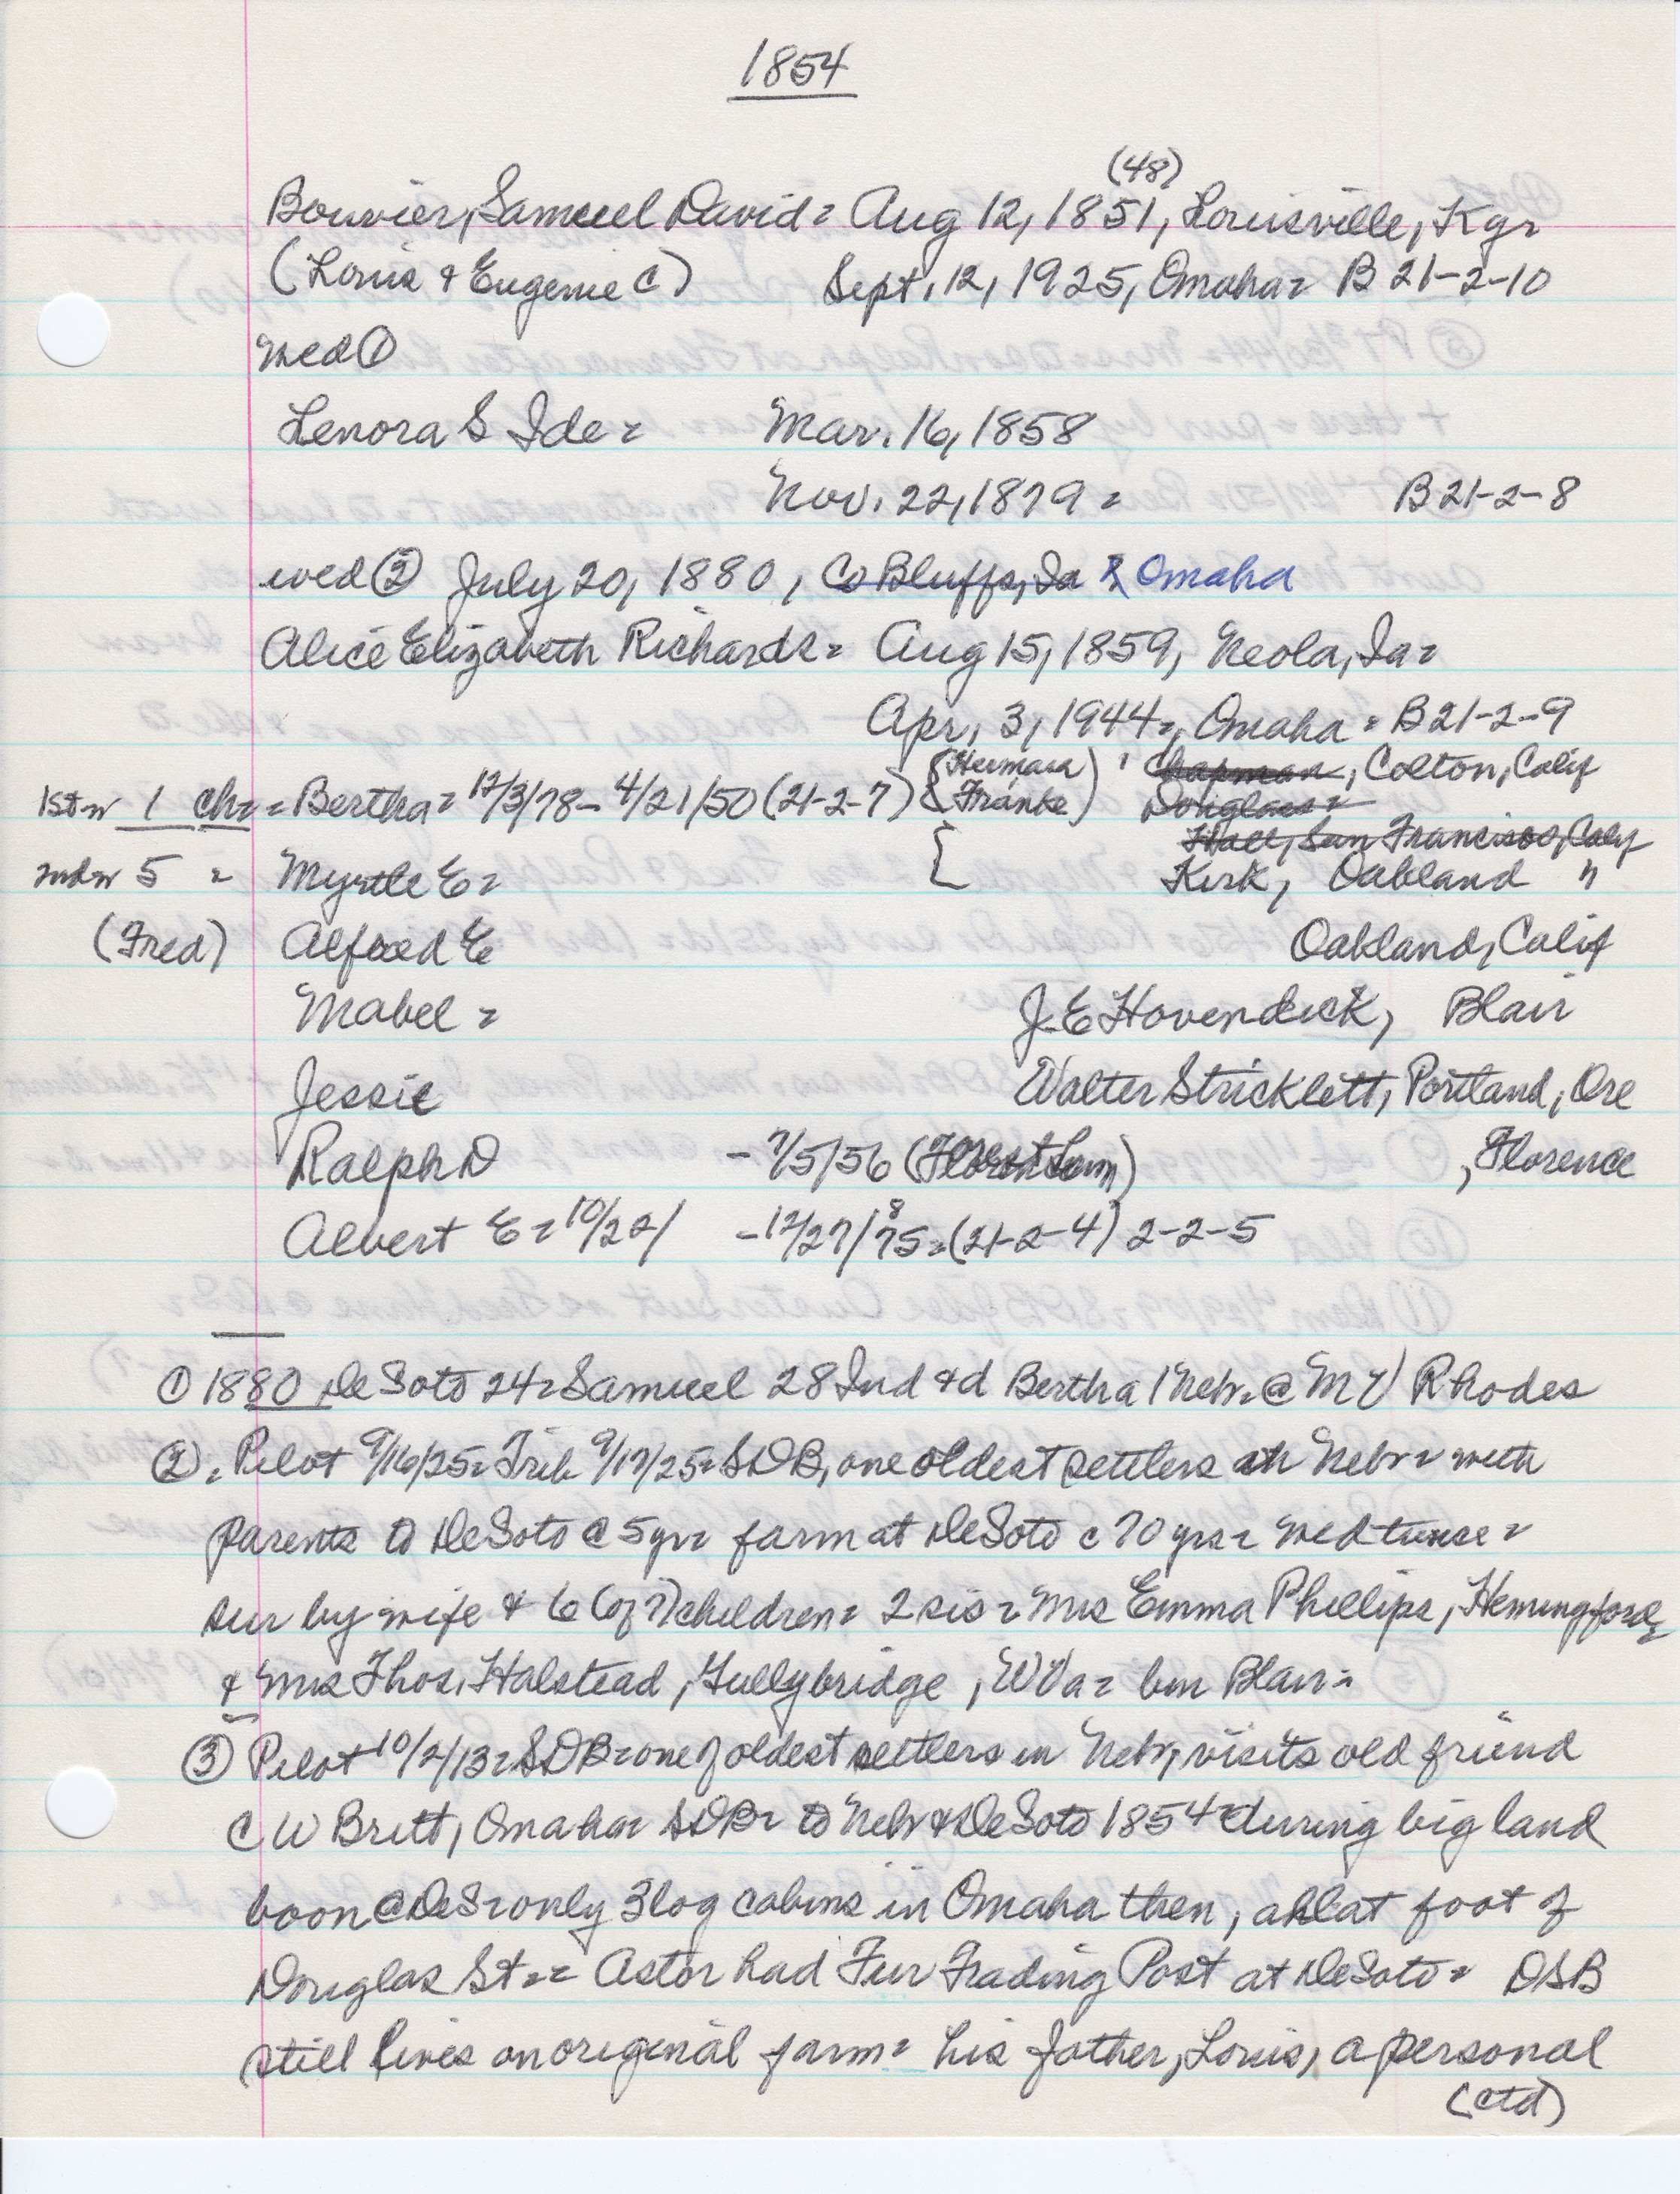 1854
(48)
Bouvier, Samuel David = Aug 12, 1851, Louisville, Ky =
(Louis & Eugenie C) Sept. 12, 1925, Omaha = B 21-2-10
wed ①
Lenora S Ide = Mar. 16, 1858
Nov. 22, 1879 = B 21-2-8
wed ② July 20, 1880, Co Bluffs, Ia Omaha
Alice Elizabeth Richards = Aug 15, 1859, Neola, Ia =
Apr. 3, 1944 =, Omaha = B 21-2-9
(Herman) Chapman, Colton, Calif
1st w 1 ch = = Bertha = 12/3/78 - 4/21/50 (21-2-7) Franke) Douglass =
Hall, San Francisco, Calif
2nd w 5 = Myrtle E = Kirk, Oakland "
(Fred) Alfred E Oakland, Calif
Mabel = J. E Hovendick, Blair
Jessie Walter Stricklett, Portland, Ore
Ralph D - 7/5/56 (Forest Lawn) , Florence
Albert E = 10/22/ - 12/27/75 = (21-2-4) 2-2-5
8
① 1880 DeSoto 24 = Samuel 28 Ind & d Bertha 1 Nebr = @ M V Rhodes
② = Pilot 9/16/25 = Trib 9/17/25 = SDB, one oldest settlers in Nebr = with
parents to DeSoto @ 5 yr = farm at DeSoto c 70 yrs = wed twice =
sur by wife & 6 (of 7) children = 2 sis = Mrs Emma Phillips, Hemingford,
& Mrs Thos. Halstead, Gullybridge, W Va = bur Blair =
③ Pilot 10/2/13 = SDB = one of oldest settlers in Nebr, visits old friend
C W Britt, Omaha = SDB = to Nebr & DeSoto 1854 = during big land
boon @ DeS = only 3 log cabins in Omaha then, all at foot of
Douglas St = = Astor had Fur Trading Post at DeSoto = DSB
still lives on original farm = his father, Louis, a personal
(ctd)